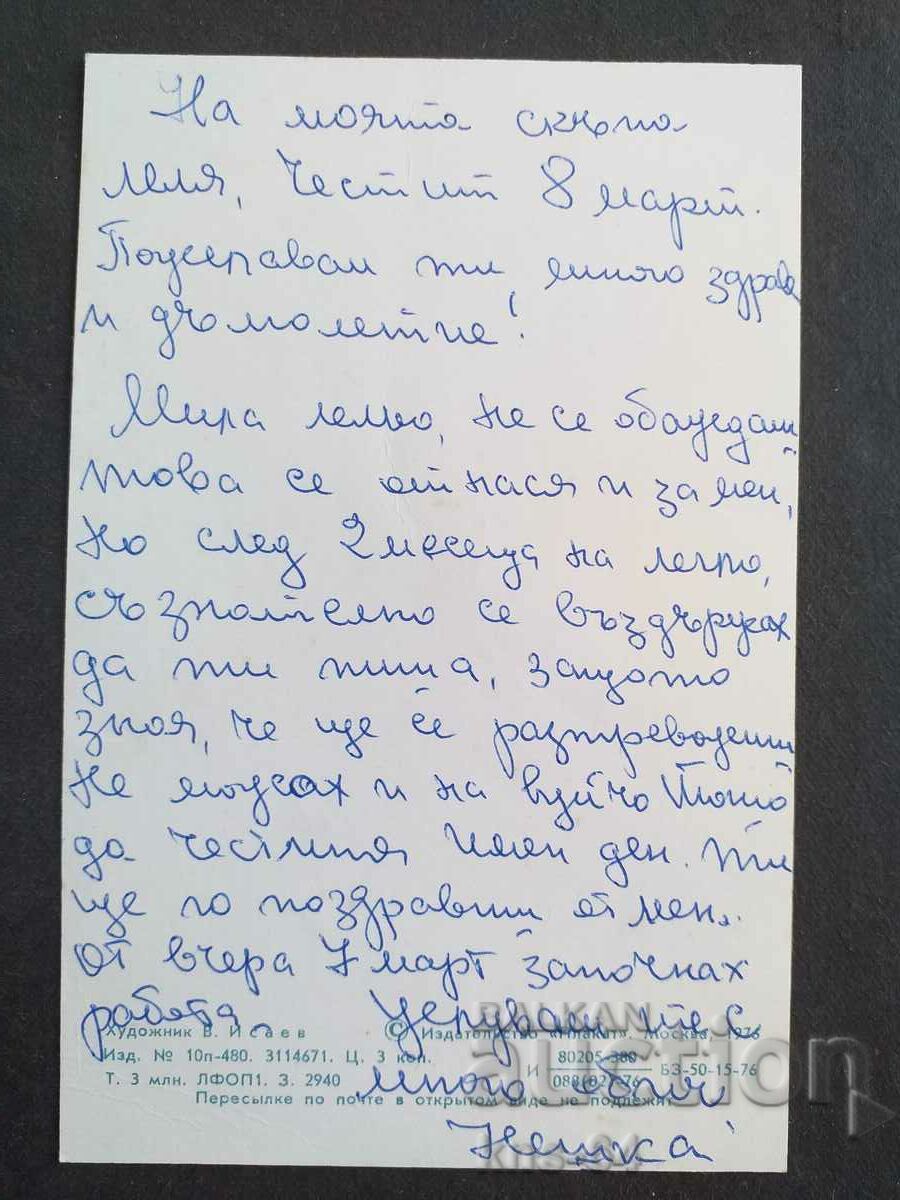 На моята скъпа
леля, Честит 8 март.
Пожелавам ти много здраве
и дълголетие!
Мила лельо, не се обаждаш
това се отнася и за мен,
но след 2 месеца на легло,
съзнателно се въздържах
да ти пиша, защото
зная, че ще се разтревожиш
Не можах и на вуйчо Тошо
да честитя Имен ден. Ти
ще го поздравиш от мен.
От вчера 7 март започнах
работа. Целувам те с
много обич
Нешка
Художник В. Исаев © Издательство «Плакат». Москва, 1976
Изд. № 10п-480. 3114671. Ц. 3 коп. И 80205-380 БЗ-50-15-76
Т. 3 млн. ЛФОП1. З. 2940 088(02)-76
Пересылке по почте в открытом виде не подлежит
BALKAN
auction